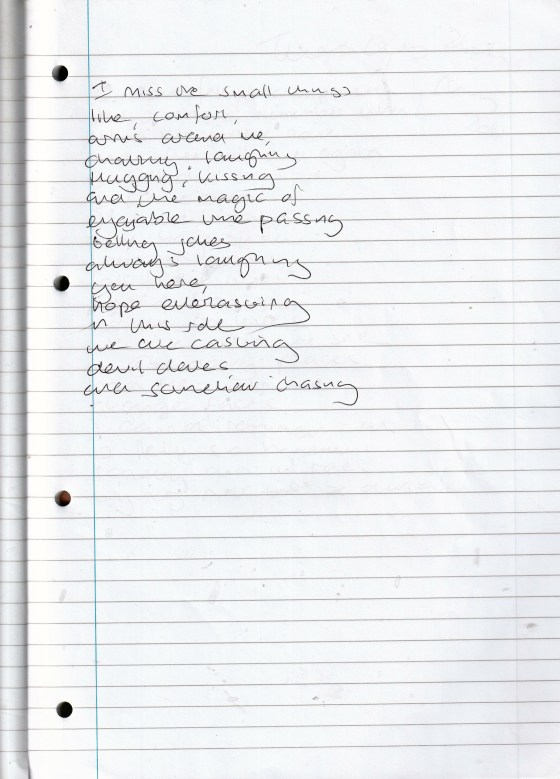 I miss the small things
like, comfort,
arms around me,
chatting, laughing
hugging, kissing
and the magic of
enjoyable time passing
telling jokes
always laughing
you here,
hope everlasting
in this role
we are casting
devil dares
and chasing